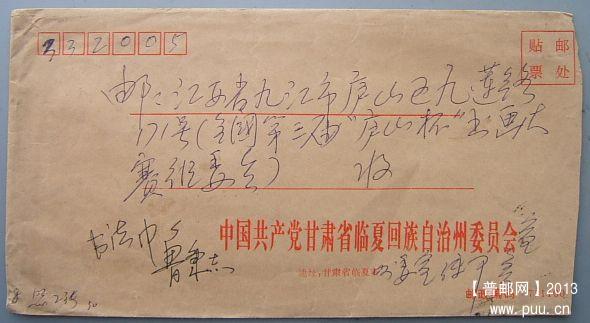 332005
贴邮
票处
邮:江西省九江市庐山区九莲路
171号(全国第三届"庐山杯"书画大
赛组委会) 收
中国共产党甘肃省临夏回族自治州委员会
地址:甘肃省临夏市
【普邮网】2013
www.puu.cn